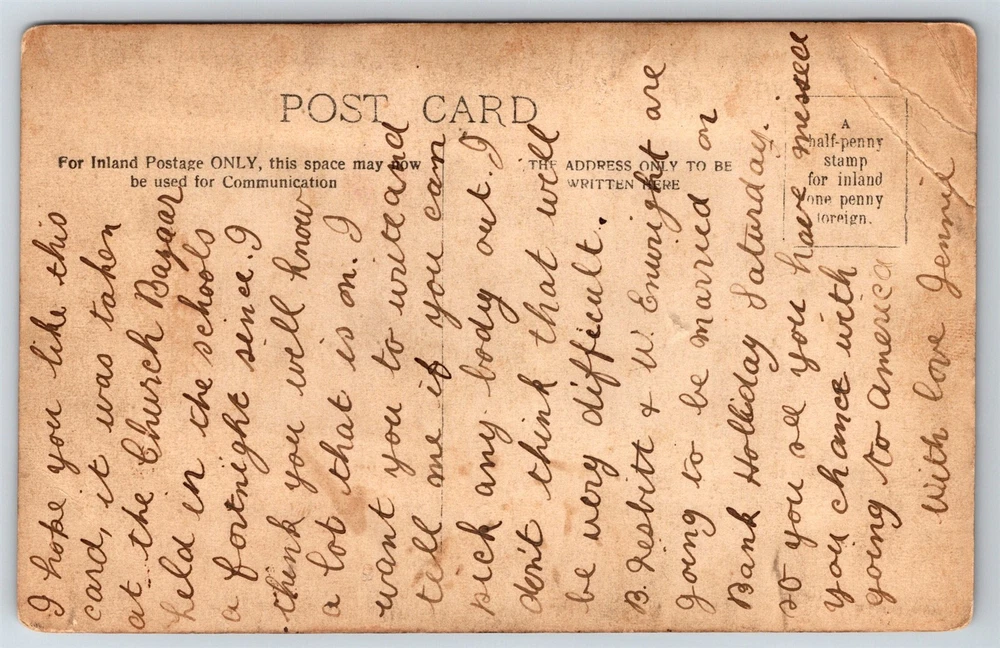 POST CARD
For Inland Postage ONLY, this space may now
be used for Communication
THE ADDRESS ONLY TO BE
WRITTEN HERE
A
half-penny
stamp
for inland
one penny
foreign.
I hope you like this
card, it was taken
at the Church Bazaar
held in the schools
a fortnight since. I
think you will know
a lot that is on. I
want you to write and
tell me if you can
pick any body out. I
don't think that will
be very difficult.
B. Nesbitt & W. Enwright are
going to be married on
Bank Holliday Saturday.
so you see you have missed
you chance with
going to America
With love Jennie